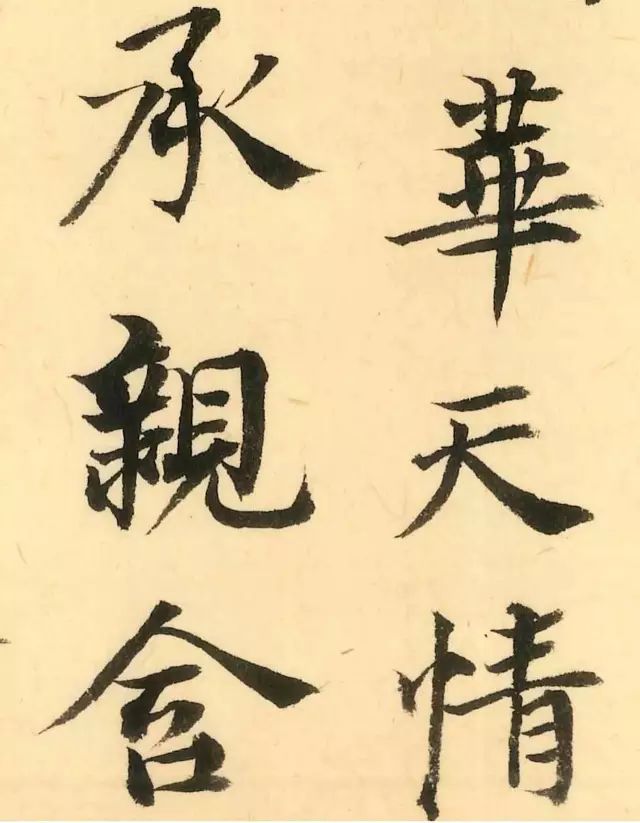 華天情
承親含